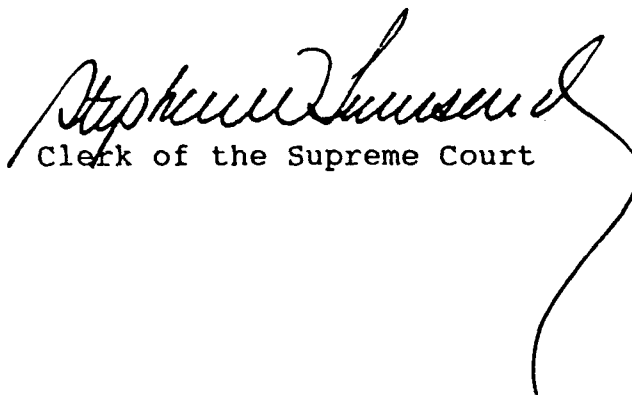 Stephen W Townsend
Clerk of the Supreme Court